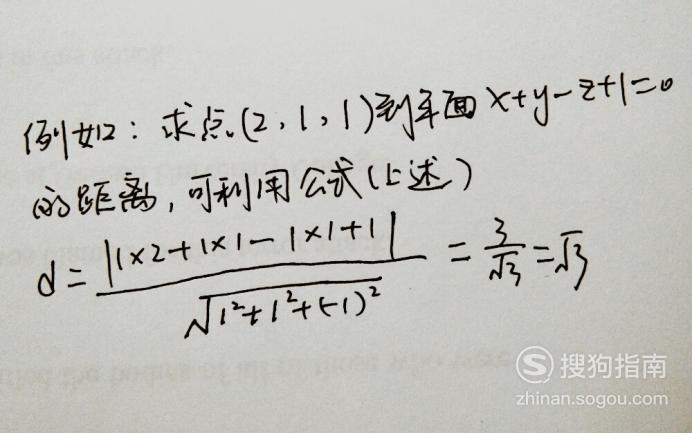 例如：求点(2,1,1)到平面x+y-z+1=0
的距离,可利用公式(上述)
d=|1×2+1×1-1×1+1|/√1²+1²+(-1)²=3/√3=√3
S 搜狗指南
zhinan.sogou.com